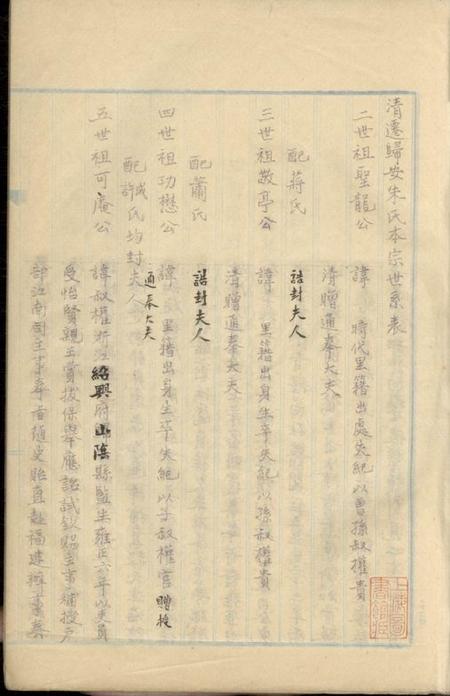 清遷歸安朱氏本宗世系表
二世祖聖龍公 諱 時代里籍出處失紀以曾孫叔權貴
清贈通奉大夫
配蔣氏 誥封夫人
三世祖敬亭公 諱 里籍出身生卒失紀以孫叔權貴
清贈通奉大夫
配蕭氏 誥封夫人
四世祖功懋公 諱 里籍出身生卒失紀以子叔權官贈授
通奉大夫
配 戚許氏均封夫人
五世祖可庵公 諱叔權浙江紹興府山陰縣監生雍正六年以吏員
受怡賢親王賞拔保舉應詔試欽賜主事補授戶
部江南司主事奉旨隨史貽直赴福建辦事
上海圖書館藏